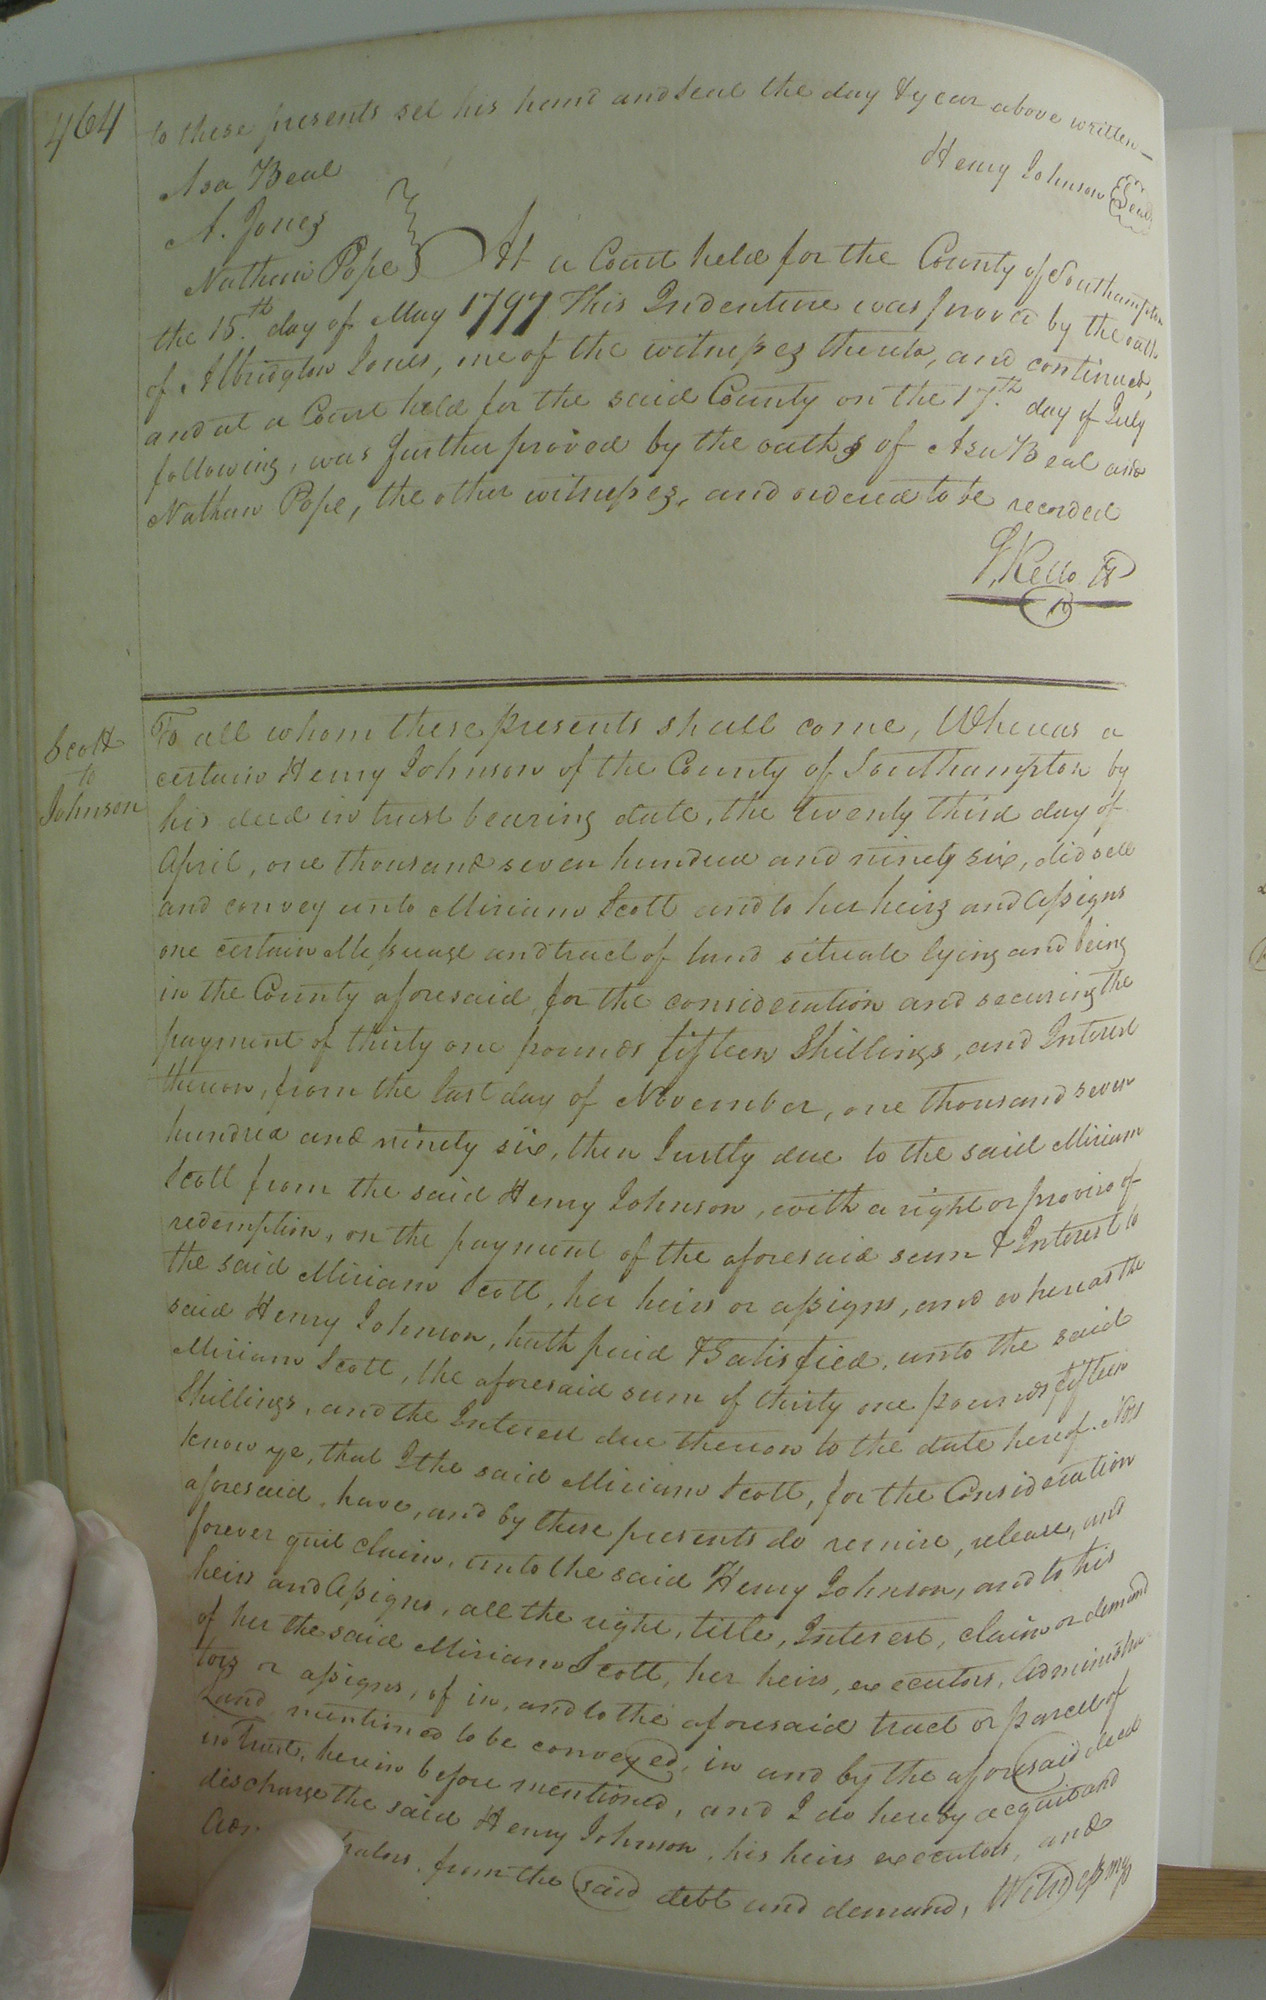 464
to these presents set his hand and Seal the day & year above written—
Henry Johnson Seal
Asa Beal
A. Jones
Nathan Pope
At a Court held for the County of Southampton
the 15th day of May 1797 This Indenture was proved by the oath
of Albridgton Jones, one of the witnesses thereto, and continued,
and at a Court held for the said County on the 17th day of July
following, was further proved by the oaths of Asa Beal and
Nathan Pope, the other witnesses, and ordered to be recorded
Kello
Scott
to
Johnson
To all whom these presents shall come, Whereas a
certain Henry Johnson of the County of Southampton by
his deed in trust bearing date, the twenty third day of
April, one thousand seven hundred and ninety six, did sell
and convey unto Miriam Scott and to her heirs and Assigns
one certain Messuage and tract of land situate lying and being
in the County aforesaid, for the consideration and securing the
payment of thirty one pounds fifteen Shillings, and Interest
thereon, from the last day of November, one thousand seven
hundred and ninety six, then Justly due to the said Miriam
Scott from the said Henry Johnson, with a right or proviso of
redemption, on the payment of the aforesaid sum & Interest to
the said Miriam Scott, her heirs or assigns, and whereas the
said Henry Johnson, hath paid & Satisfied, unto the said
Miriam Scott, the aforesaid sum of thirty one pounds fifteen
Shillings, and the Interest due thereon to the date hereof. Now
know ye, that I the said Miriam Scott, for the Consideration
aforesaid, have, and by these presents do remise, release, and
forever quit claim, unto the said Henry Johnson, and to his
heirs and Assigns, all the right, title, Interest, claim or demand
of her the said Miriam Scott, her heirs, executors, Administra-
tors or assigns, of in, and to the aforesaid tract or parcel of
Land mentioned to be conveyed, in and by the aforesaid deed
in trust, herein before mentioned, and I do hereby acquit and
discharge the said Henry Johnson, his heirs executors, and
from the said debt and demand, Witness my